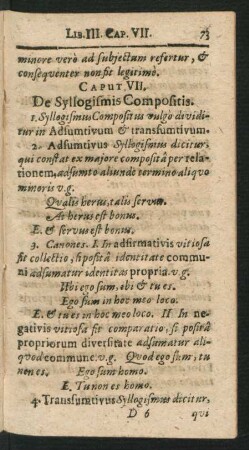 LIB. III. CAP. VII. 73
minore verò ad subjectum refertur, &
consequenter non fit legitimò.
CAPUT. VII.
De Syllogismis Compositis.
1. Syllogismus Compositus vulgò dividi-
tur in Adsumtivum & transsumtivum.
2. Adsumtivus Syllogismus dicitur,
qui constat ex majore compositâ per re-
lationem, adsumto aliunde termino aliquo
minoris v.g.
Qualis herus, talis servus.
At herus est bonus.
E. & servus est bonus.
3. Canones. I. In adfirmativis vitiosa
fit collectio, si positâ identitate commu-
ni adsumatur identitas propria. v.g.
Ubi ego sum, ibi & tu es.
Ego sum in hoc meo loco.
E. & tu es in hoc meo loco. II In ne-
gativis vitiosa fit comparatio, si positâ
propriorum diversitate adsumatur ali-
quod commune: v.g. Quod ego sum, tu
non es. Ego sum homo.
E. Tu non es homo.
4. Transsumtivus Syllogismus dicitur,
D 6 qui